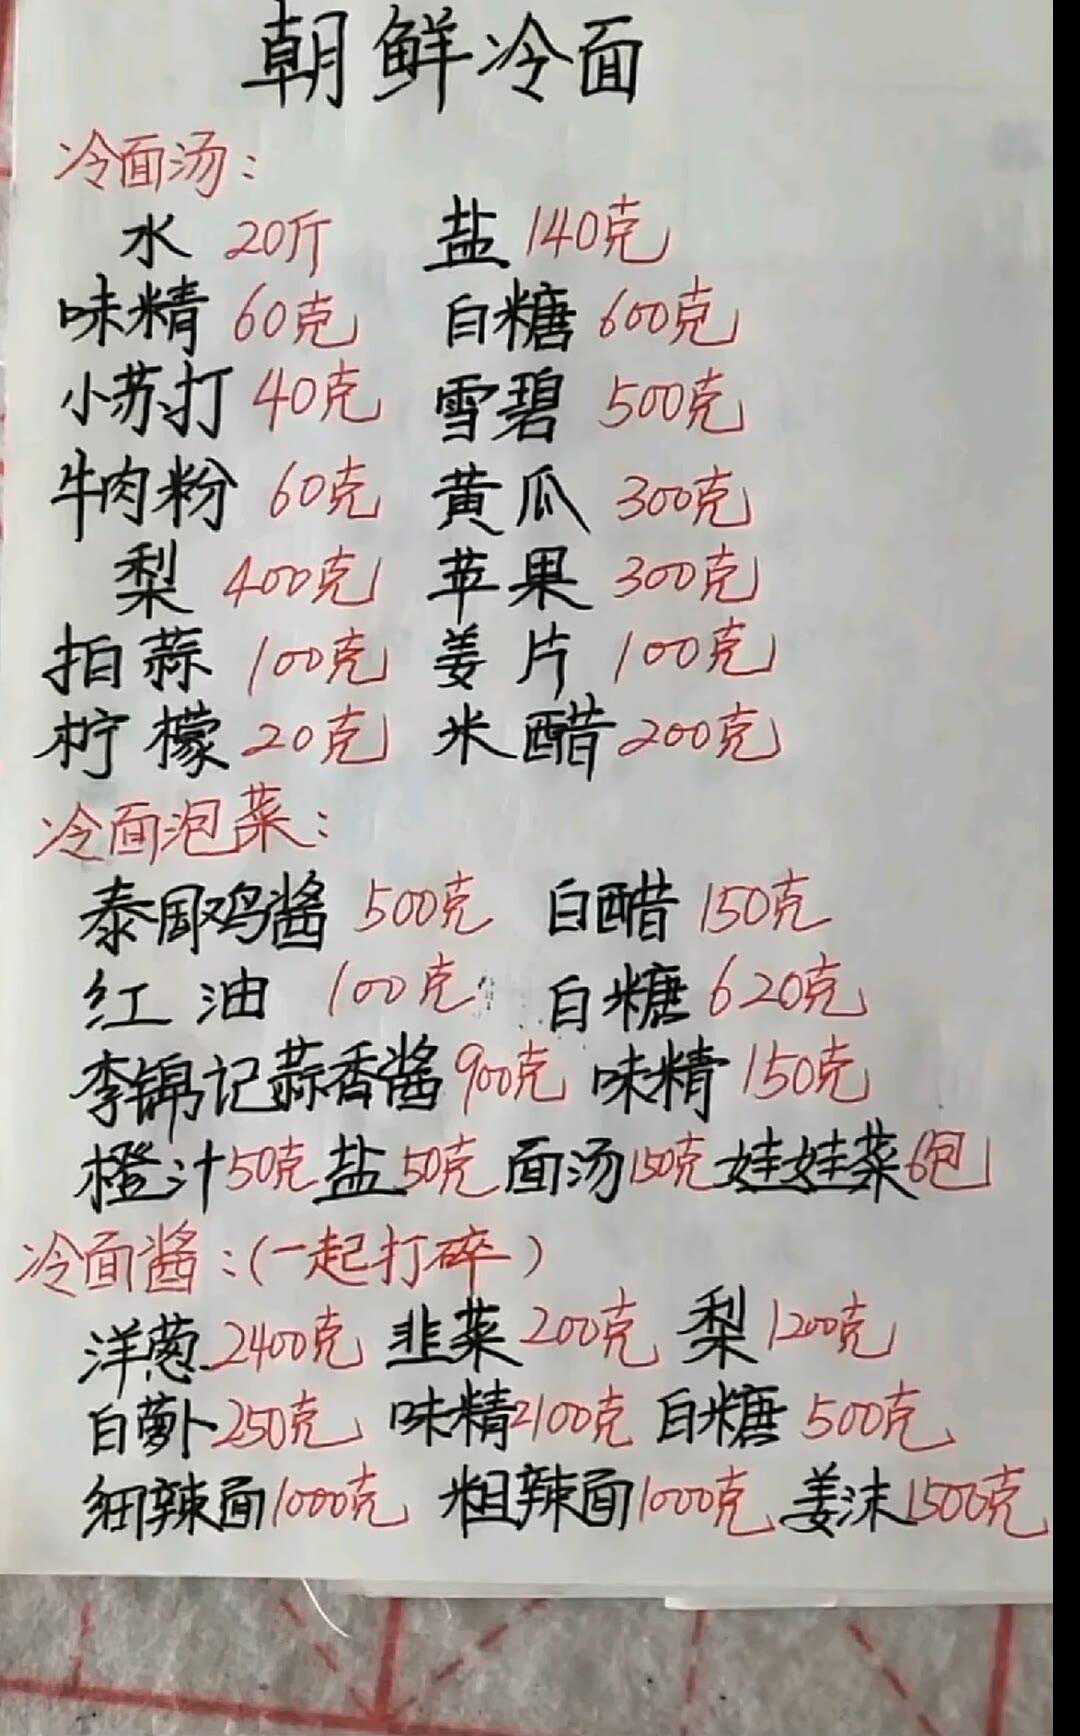 朝鲜冷面
冷面汤：
水 20斤 盐 140克
味精 60克 白糖 600克
小苏打 40克 雪碧 500克
牛肉粉 60克 黄瓜 300克
梨 400克 苹果 300克
拍蒜 100克 姜片 100克
柠檬 20克 米醋 200克
冷面泡菜：
泰国鸡酱 500克 白醋 150克
红油 100克 白糖 620克
李锦记蒜香酱 900克 味精 150克
橙汁 50克 盐 50克 面汤 150克 娃娃菜 6包
冷面酱：（一起打碎）
洋葱 2400克 韭菜 200克 梨 1200克
白萝卜 250克 味精 2100克 白糖 500克
细辣面 1000克 粗辣面 1000克 姜沫 1500克